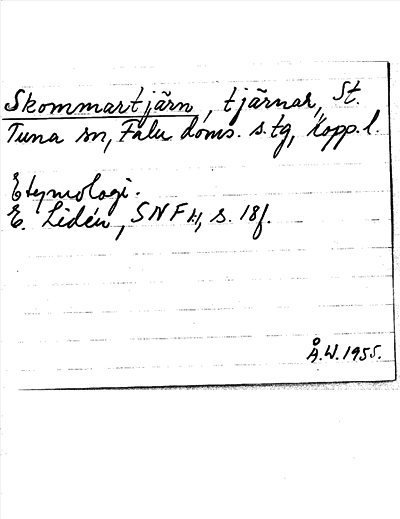 Skommartjärn, tjärnar, St.
Tuna sn, Falu doms. s.tg, Kopp. l.
Etymologi.
E. Lidén, SNF H, s. 18f.
Å.W. 1955.